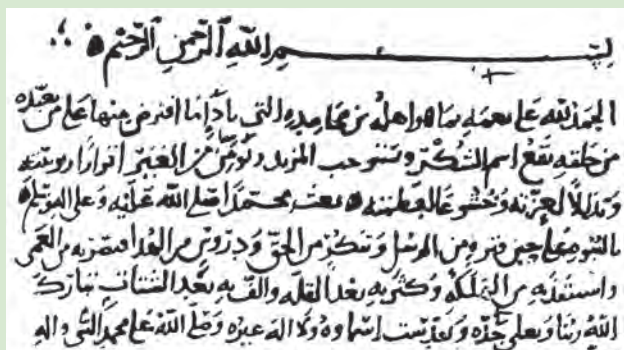 بسم الله الرحمن الرحيم
الحمد لله على نعمه بما هو اهله من محامده التي بادا ما افترض منها على من تعبده
من خلقه يقع اسم الشكر وتستوجب المزيد وتومن من الغير اقرارا بربوبيته
وتذللا لعزته وخشوعا لعظمته بعث محمدا صلى الله عليه وعلى اله وسلم
بالنبوه على حين فتره من الرسل وتنكر من الحق ودروس من الهدا فبصر به من العمى
واستنقذ به من الهلكه وكثر به بعد القله والف به بعد الشتات تبارك
الله ربنا وتعلى جده وتقدست اسماوه ولا اله غيره وصلى الله على محمد النبي واله